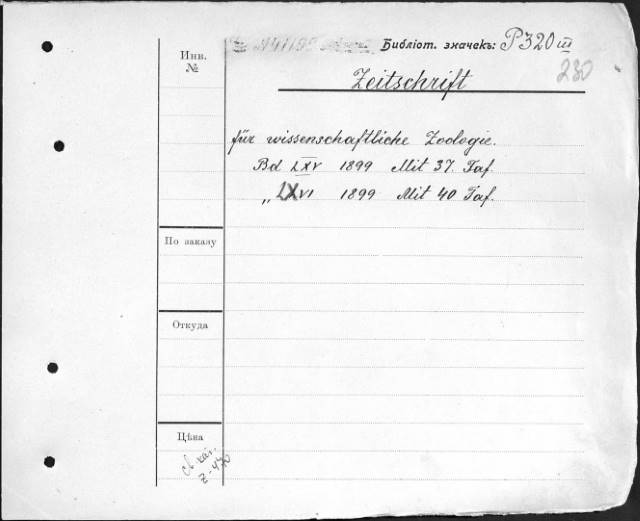 Библіот. значекъ: P320 III
Инв. №
230
Zeitschrift
für wissenschaftliche Zoologie.
Bd LXV 1899 Mit 37. Taf.
„ LXVI 1899 Mit 40 Taf.
По заказу
Откуда
Цѣна